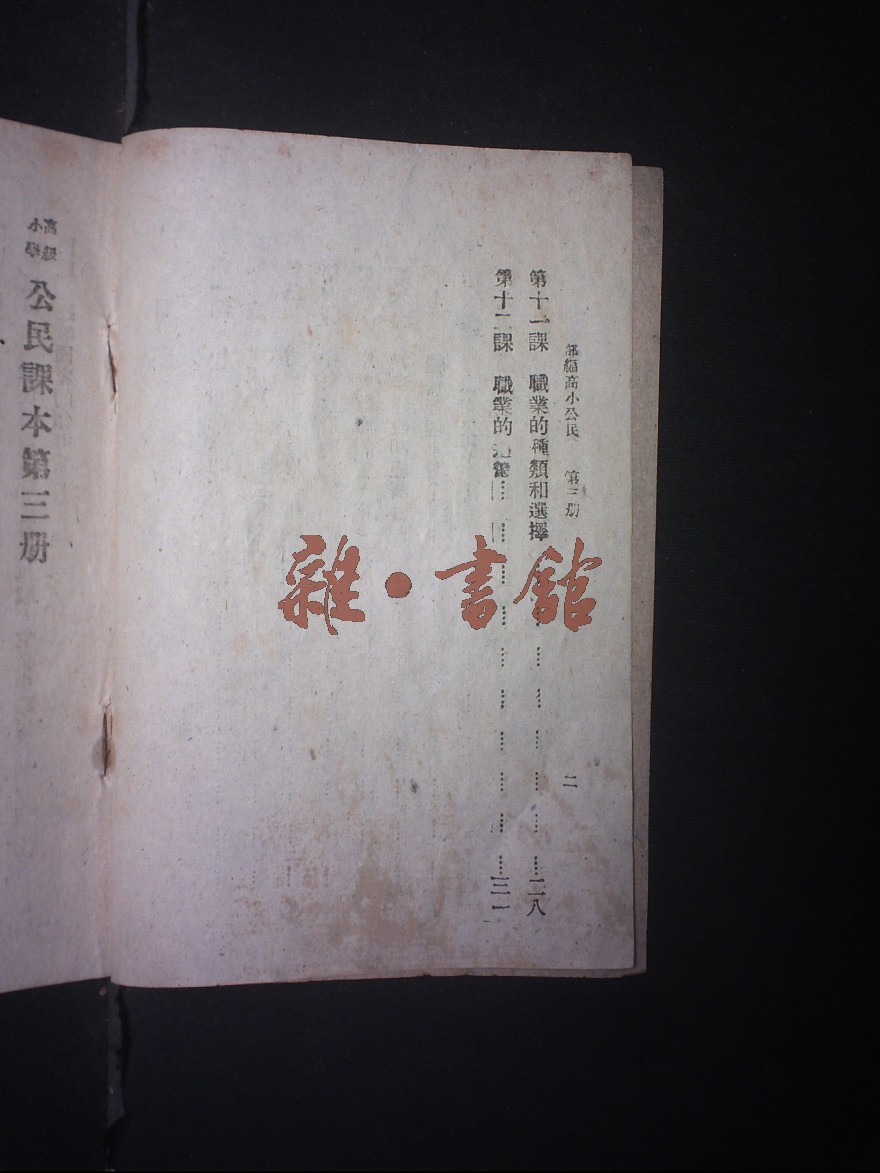 部編高小公民 第三册 二
第十一課 職業的種類和選擇……二八
第十二課 職業的……三一
高級小學 公民課本第三册
雜・書館